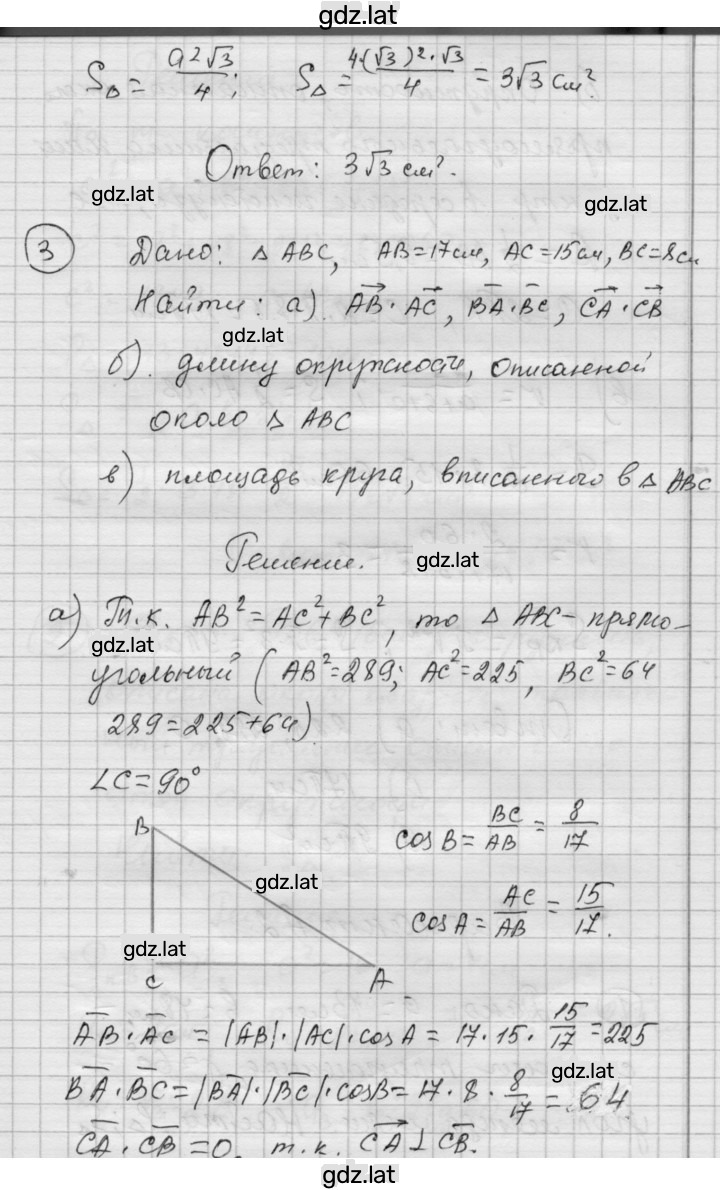 gdz.lat
S△ = a²√3/4; S△ = 4·(√3)²·√3/4 = 3√3 см².
Ответ: 3√3 см².
gdz.lat
gdz.lat
3 Дано: △ ABC, AB=17см, AC=15см, BC=8см
Найти: а) AB · AC, BA · BC, CA · CB
gdz.lat
б). длину окружности, описанной
около △ ABC
в) площадь круга, вписанного в △ ABC
Решение.
gdz.lat
а) Т.к. AB² = AC² + BC², то △ ABC – прямо-
gdz.lat
угольный (AB²=289; AC²=225, BC²=64
289=225+64)
∠C = 90°
B
cos B = BC/AB = 8/17
gdz.lat
cos A = AC/AB = 15/17.
gdz.lat
C A
AB · AC = |AB| · |AC| · cos A = 17 · 15 · 15/17 = 225
gdz.lat
BA · BC = |BA| · |BC| · cos B = 17 · 8 · 8/17 = 64
CA · CB = 0, т.к. CA ⊥ CB.
gdz.lat